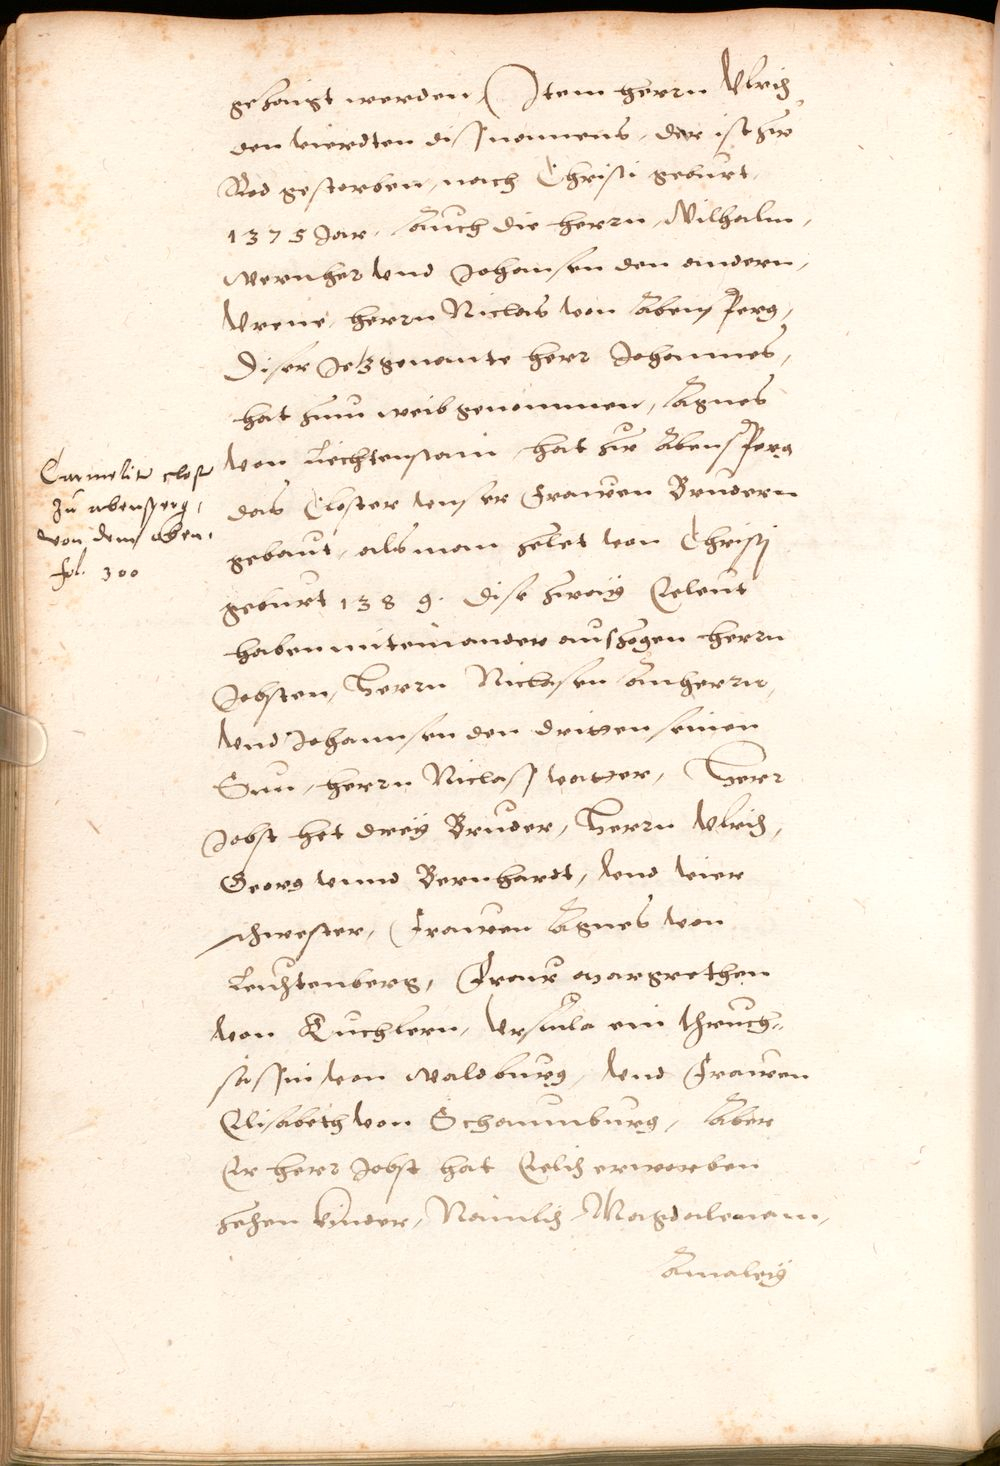 gezaigt werden, Item herrn Vlrich
den vierdten diss namens, der ist zur
Rod gestorben, nach Christi geburt,
1375 Jar. Auch die herrn, Wilhalm,
Wernher vnd Johansen den andern,
Vrene, herrn Niclas von Abensperg,
Diser Jetzgenante herr Johannes,
hat zum weib genommen, Agnes
von Liechtenstain, hat zu Abensperg
das Closter vnser Frawen Brudern
gebaut, als man zelet von Christj
geburt 1389. Dise zway Eeleut
haben miteinander auszogen herrn
Jobsten, Herrn Niclasen Anherrn,
vnd Johannsen den dritten seinen
Sun, herrn Niclass vatter, Herr
Jobst het drey Bruder, Herrn Vlrich,
Georg vnnd Bernhardt, vnd vier
schwester, Frawen Agnes von
Leuchtenberg, Fraw Margrethen
von Kuchlern, Vrsula ein thruch-
sässin von Waldburg, vnd Frawen
Elisabeth von Schaumburg, Aber
Er herr Jobst hat Eelich erworben
zehen kinder, Nämlich Magdalenam,
Amaleÿ
Carmeliter closter
zu abensperg,
von dem oben.
fol. 300